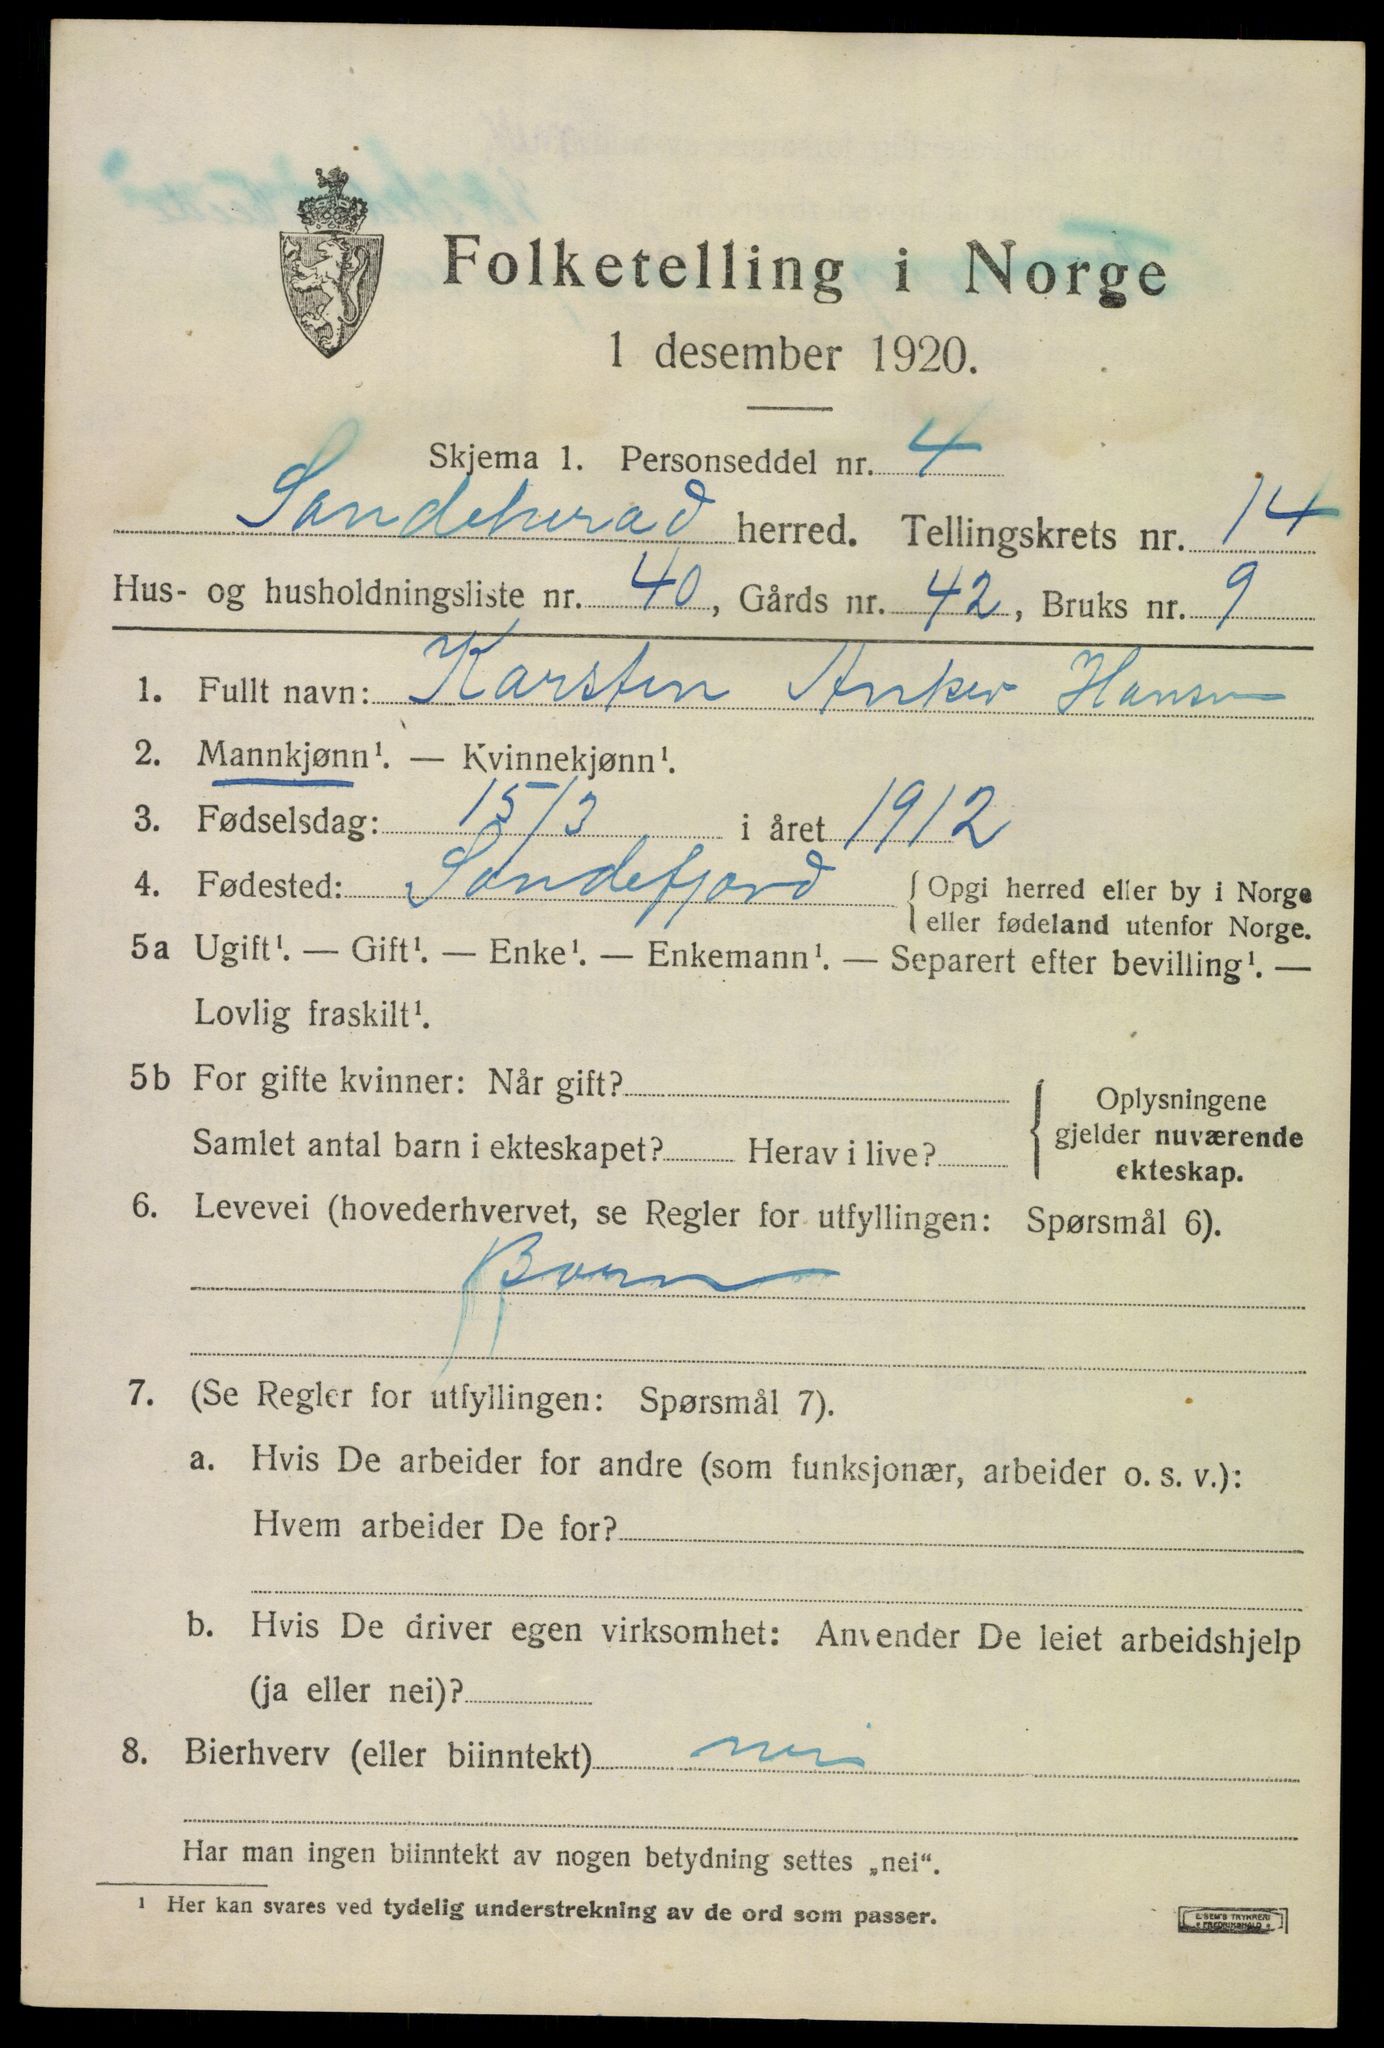 Folketelling i Norge
1 desember 1920.
Skjema 1. Personseddel nr. 4
Sandeherad herred. Tellingskrets nr. 14
Hus- og husholdningsliste nr. 40, Gårds nr. 42, Bruks nr. 9
1. Fullt navn: Karsten Anker Hansen
2. Mannkjønn¹. — Kvinnekjønn¹.
3. Fødselsdag: 15/3 i året 1912
4. Fødested: Sandefjord { Opgi herred eller by i Norge
eller fødeland utenfor Norge.
5a Ugift¹. — Gift¹. — Enke¹. — Enkemann¹. — Separert efter bevilling¹. —
Lovlig fraskilt¹.
5b For gifte kvinner: Når gift?
Samlet antal barn i ekteskapet? Herav i live?
{ Oplysningene
gjelder nuværende
ekteskap.
6. Levevei (hovederhvervet, se Regler for utfyllingen: Spørsmål 6).
Barn
7. (Se Regler for utfyllingen: Spørsmål 7).
a. Hvis De arbeider for andre (som funksjonær, arbeider o. s. v.):
Hvem arbeider De for?
b. Hvis De driver egen virksomhet: Anvender De leiet arbeidshjelp
(ja eller nei)?
8. Bierhverv (eller biinntekt) nei
Har man ingen biinntekt av nogen betydning settes „nei“.
¹ Her kan svares ved tydelig understrekning av de ord som passer.
TRYKKERI
FREDRIKSHALD